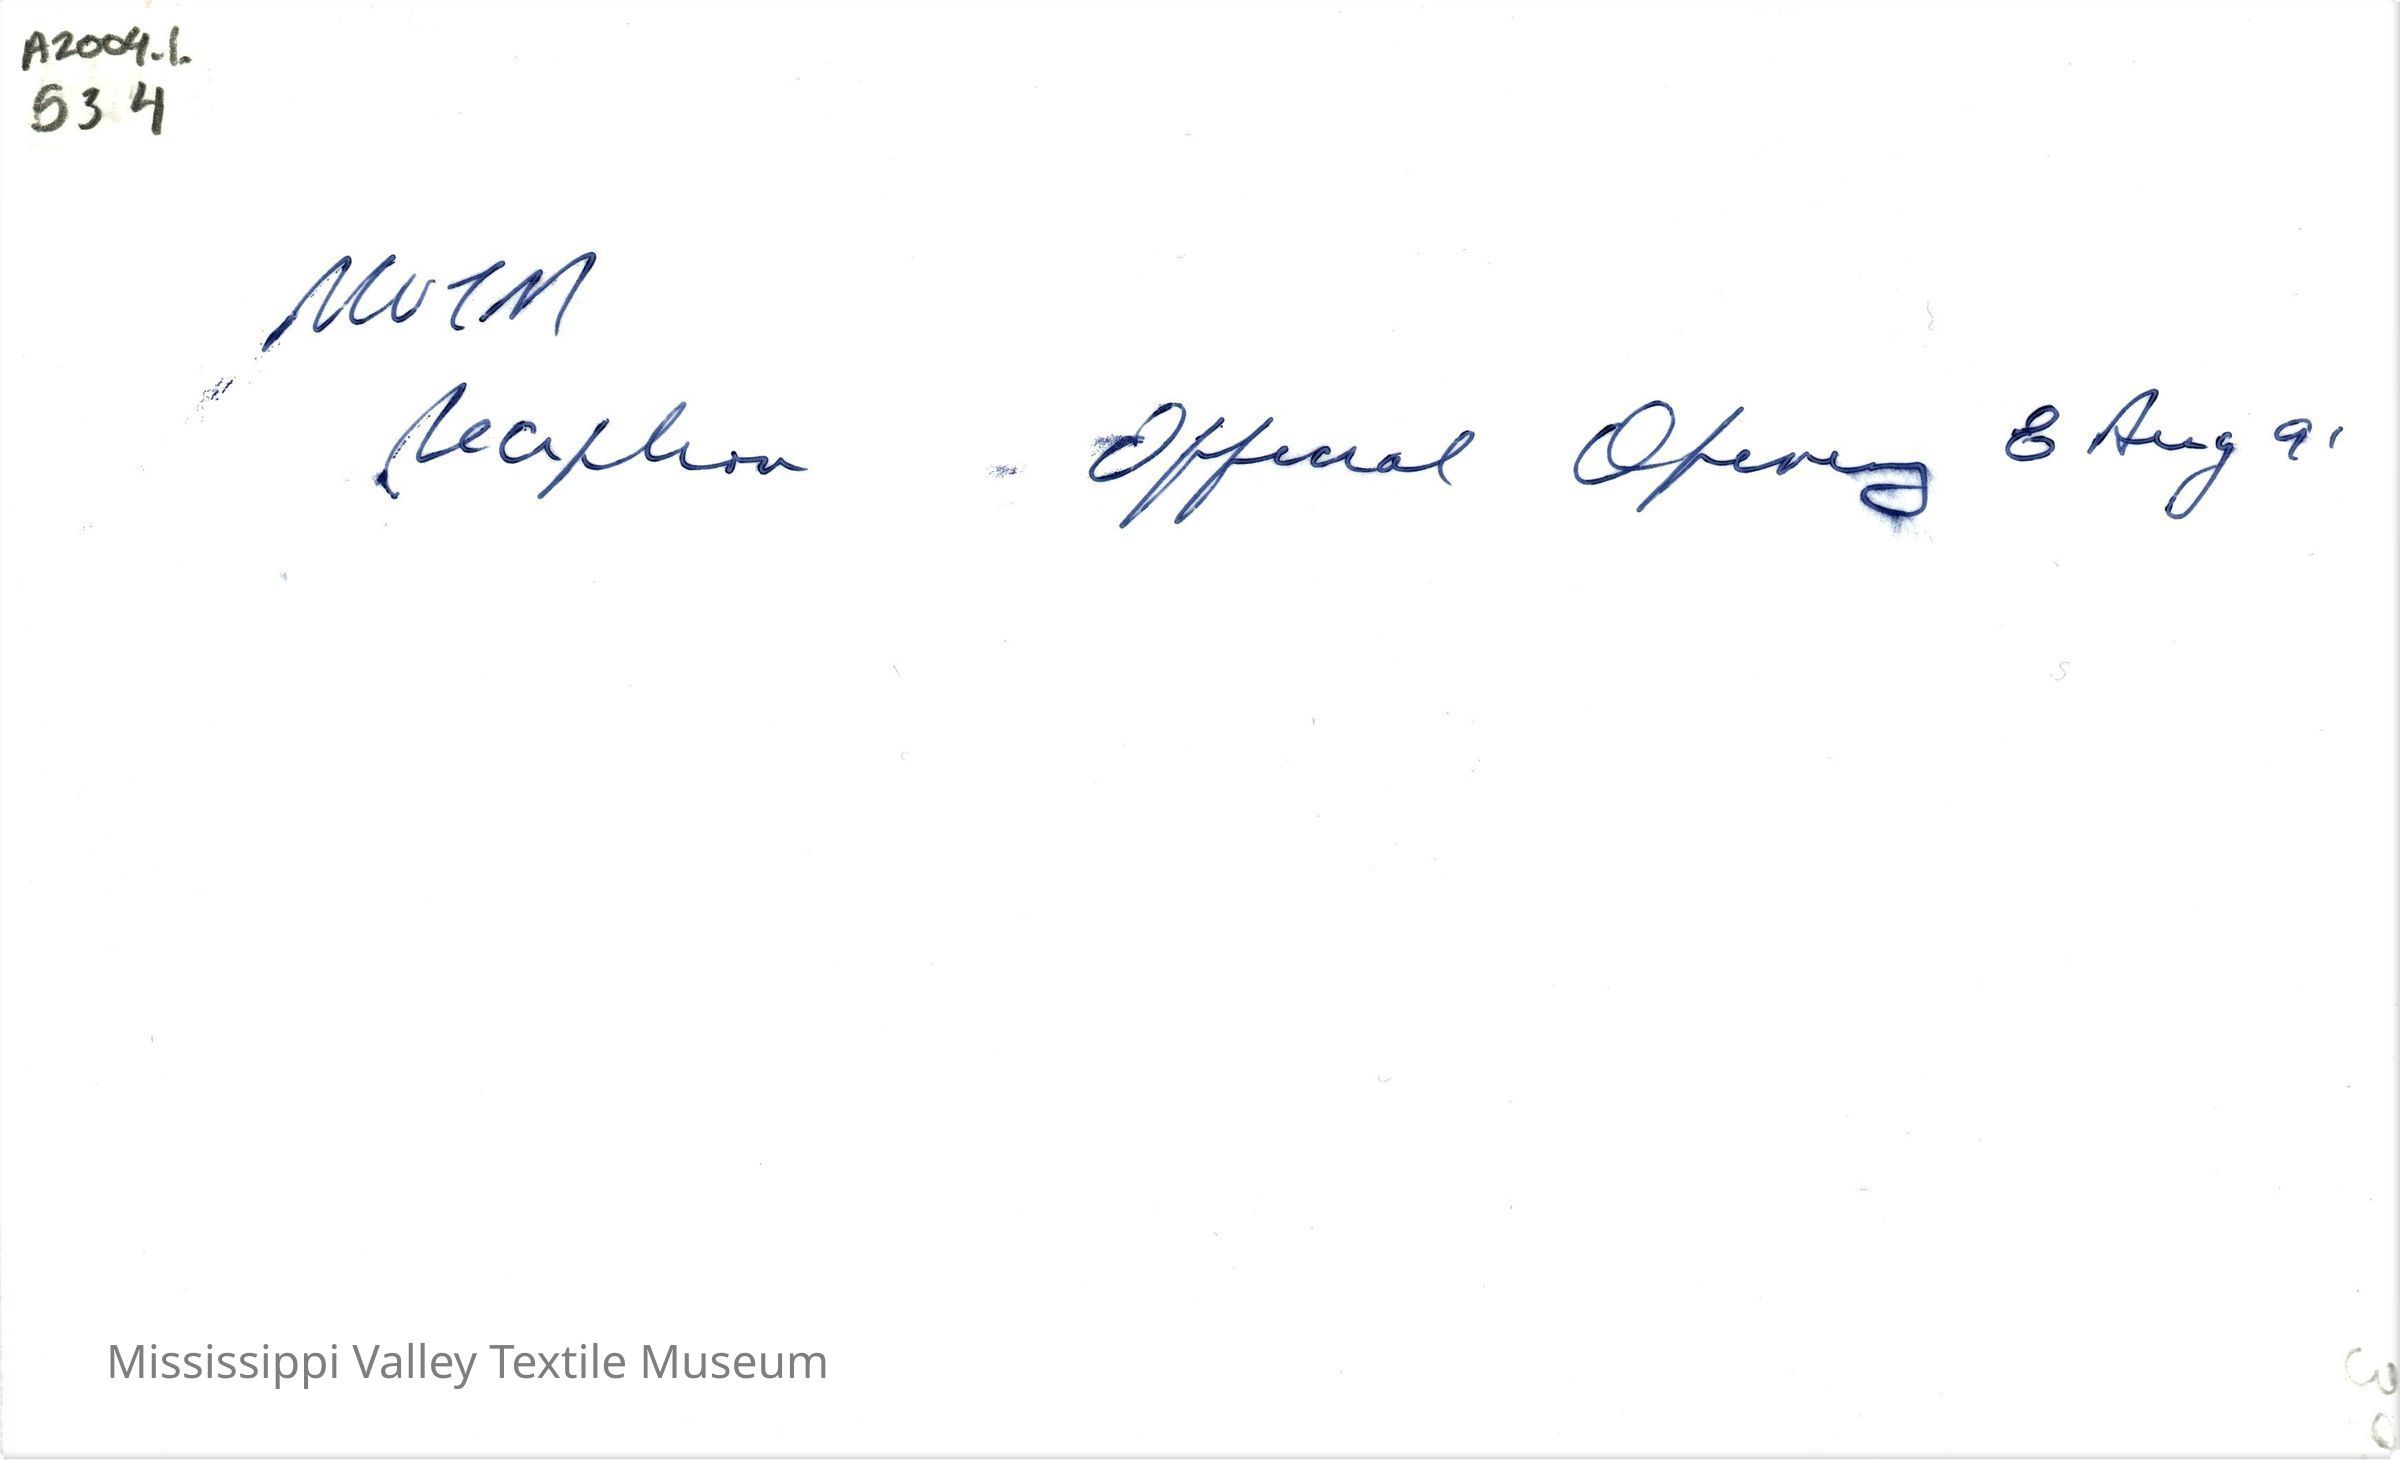 A2004.1.
534
MVTM
Reception - Official Opening 8 Aug 91
Mississippi Valley Textile Museum